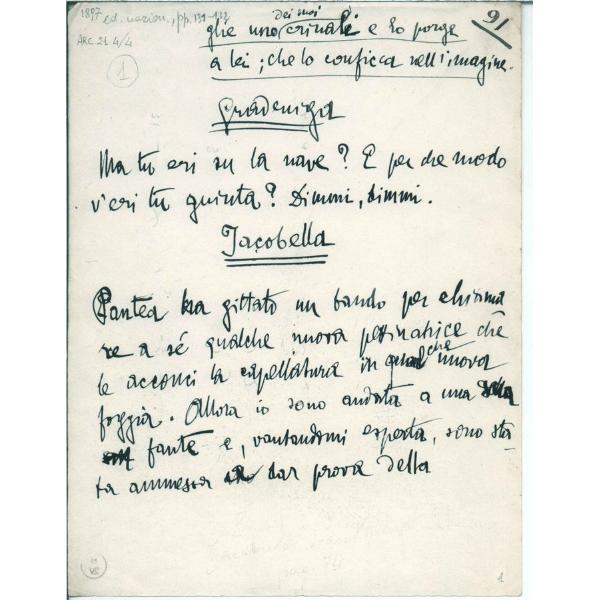 1897 ed. nazion., pp. 131-132
ARC. 21 4/4
1
91
dei suoi
glie uno crinali e lo porge
a lei ; che lo conficca nell'imagine.
Gradeniga
Ma tu eri su la nave? E per che modo
v'eri tu giunta? Dimmi, dimmi.
Jacobella
Pantea ha gittato un bando per chiama
re a sé qualche nuova pettinatrice che
le acconci la capellatura in qualche nuova
foggia. Allora io sono andata a una
fante e, vantandomi esperta, sono sta
ta ammessa a dar prova della
1